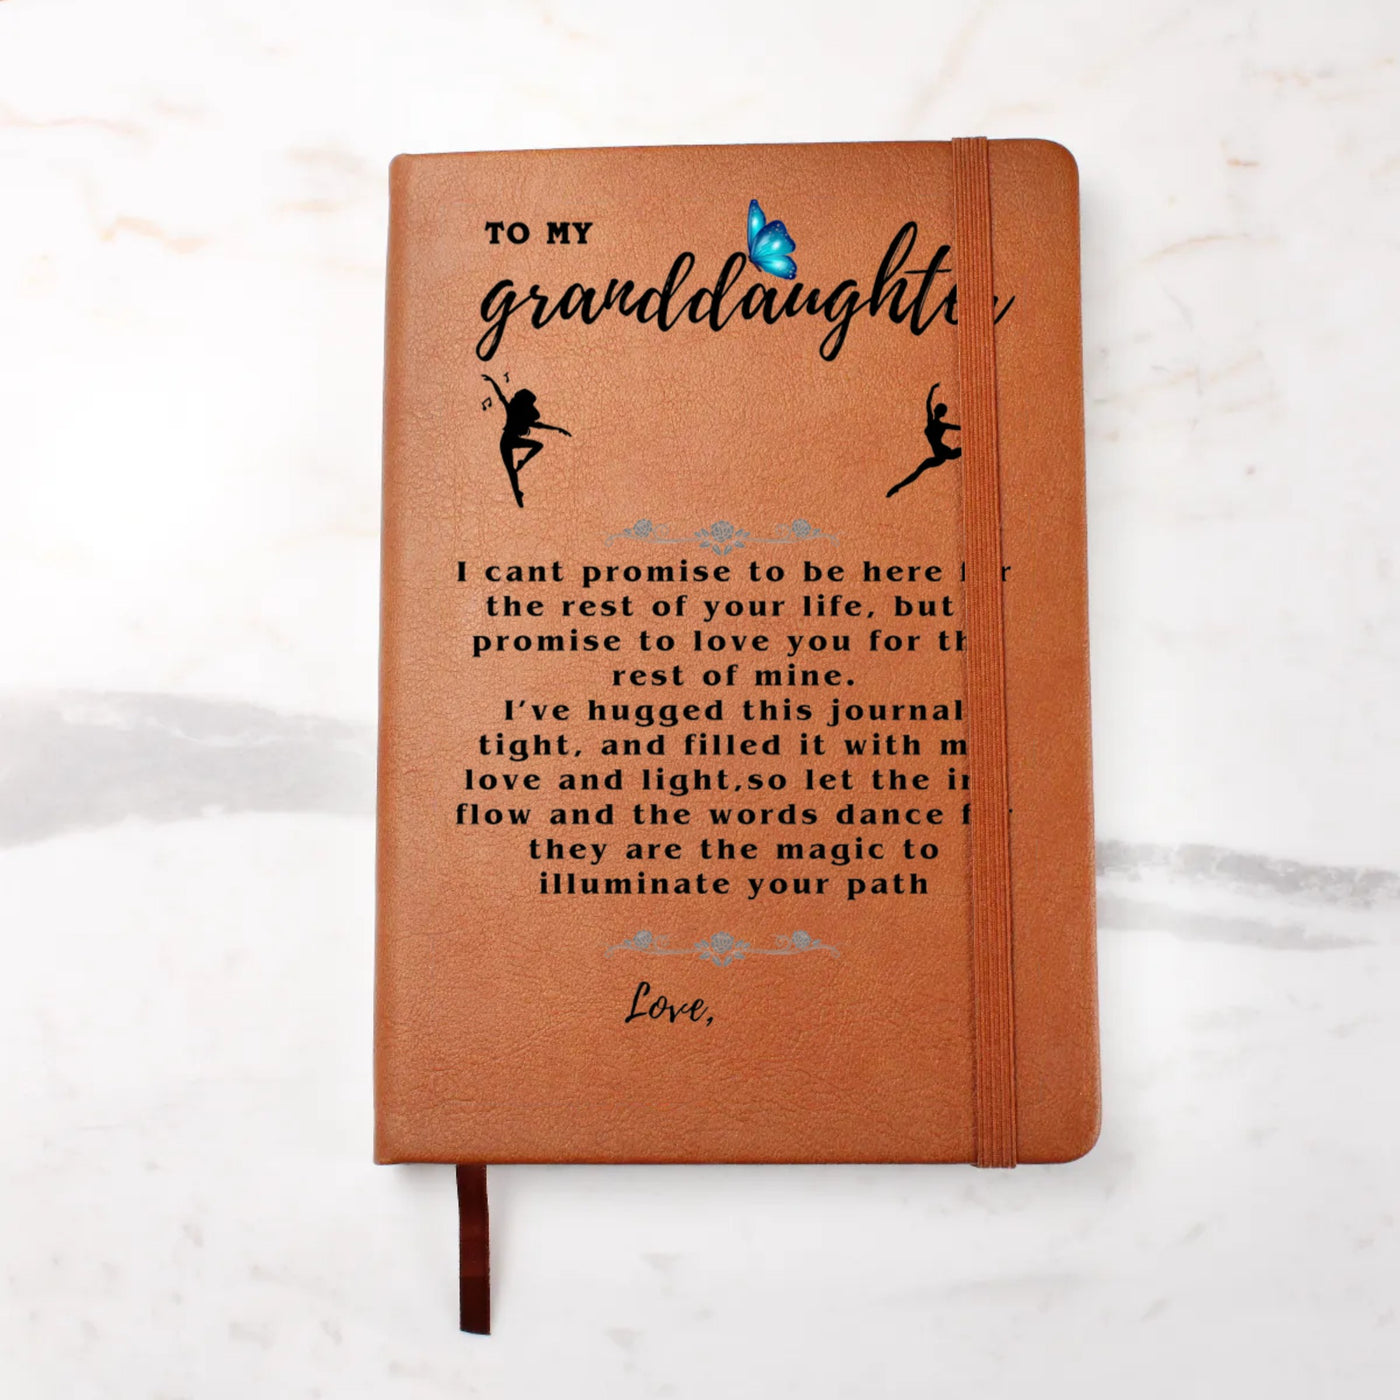 TO MY
granddaughter
I cant promise to be here for
the rest of your life, but
promise to love you for the
rest of mine.
I've hugged this journal
tight, and filled it with my
love and light,so let the ink
flow and the words dance for
they are the magic to
illuminate your path
Love,